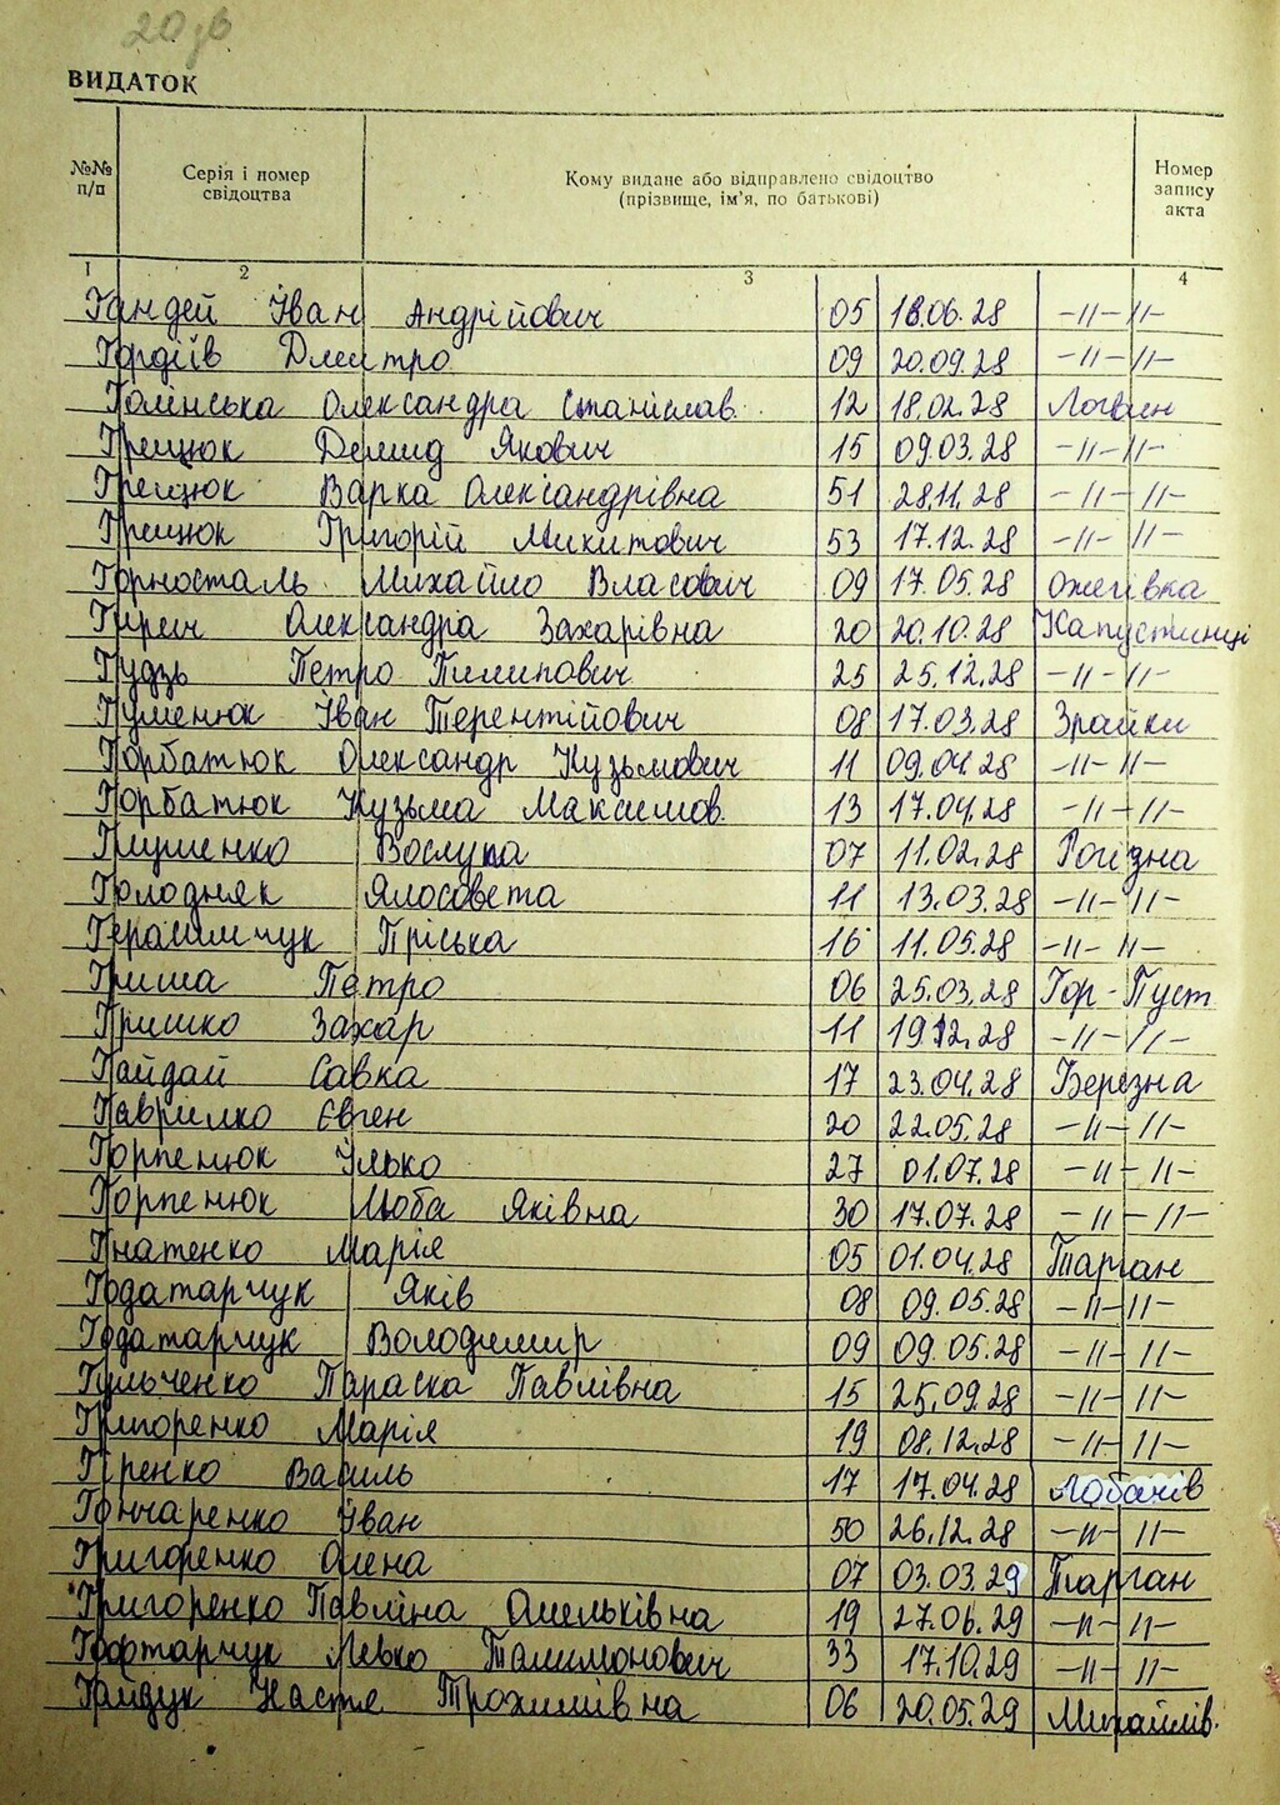 ВИДАТОК
№№ п/п Серія і номер свідоцтва Кому видане або відправлено свідоцтво (прізвище, ім'я, по батькові) Номер запису акта
1 2 3 4
Гандей Іван Андрійович 05 18.06.28 -//-//-
Гордіїв Дмитро 09 20.09.28 -//-//-
Голінська Олександра Станіслав. 12 18.02.28 Логвин
Грещюк Демид Якович 15 09.03.28 -//-//-
Грещюк Варка Олександрівна 51 28.11.28 -//-//-
Грещюк Григорій Микитович 53 17.12.28 -//-//-
Горносталь Михайло Власович 09 17.05.28 Ожегівка
Олександра Захарівна 20 20.10.28 Капустинці
Гудзь Петро Пилипович 25 25.12.28 -//-//-
Гуменюк Іван Терентійович 08 17.03.28 Зрайки
Горбатюк Олександр Кузьмович 11 09.04.28 -//-//-
Горбатюк Кузьма Максимов. 13 17.04.28 -//-//-
07 11.02.28 Рогізна
Голодняк Ялосовета 11 13.03.28 -//-//-
Герасимчук Пріська 16 11.05.28 -//-//-
Гриша Петро 06 25.03.28 Гор-Пуст
Гришко Захар 11 19.12.28 -//-//-
Гайдай Савка 17 23.04.28 Березна
Гаврилко Євген 20 22.05.28 -//-//-
Горпенюк Ілько 27 01.07.28 -//-//-
Горпенюк Люба Яківна 30 17.07.28 -//-//-
Гнатенко Марія 05 01.04.28 Тарган
Годатарчук Яків 08 09.05.28 -//-//-
Годатарчук Володимир 09 09.05.28 -//-//-
Гульченко Параска Павлівна 15 25.09.28 -//-//-
Григоренко Марія 19 08.12.28 -//-//-
Гіренко Василь 17 17.04.28 Лобачів
Гончаренко Іван 50 26.12.28 -//-//-
Григоренко Олена 07 03.03.29 Тарган
Григоренко Павліна Омельківна 19 27.06.29 -//-//-
Левко Талимонович 33 17.10.29 -//-//-
Гайдук Настя Трохимівна 06 20.05.29 Михайлів.